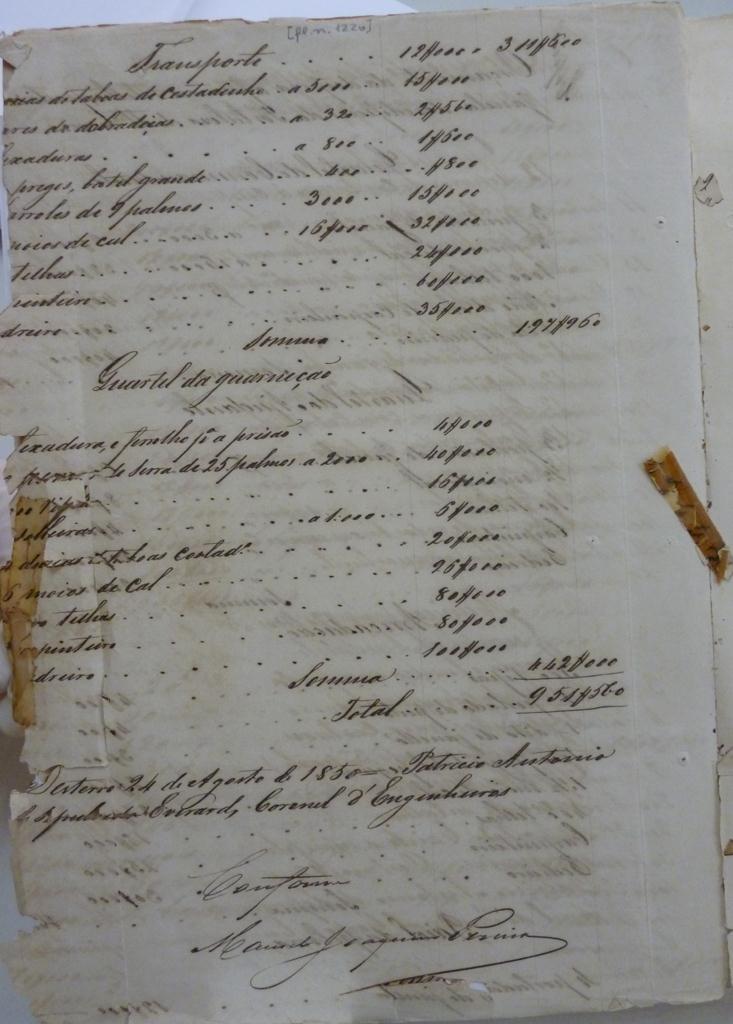 [fl.n. 1220]
Transporte . . . . 12$000 311$600
ozias de taboas de costadinho a 5000 15$000
ares de dobradiças . a 320 2$560
exaduras . . . . . a 800 1$600
pregos, batel grande 400 . . $800
arrotes de 9 palmos . . . 3000 . . 15$000
moios de cal . . . . 16$000 32$000
telhas . . . . . 24$000
pinteiro . . . . . 60$000
dreiro . . . . . 35$000
Somma . . . . 197$960
Quartel da guarnição
fexadura, e ferrolho pª a prisão . . . . 4$000
de serra de 25 palmos a 2000 . . 40$000
16$000
solleiras . . . . a 1:000 . . 6$000
duzias taboas costadº . . . . 20$000
6 moios de cal . . . . . 96$000
telhas . . . . . 80$000
arpinteiro . . . . . 80$000
dreiro . . . . . 100$000
Somma . . . . 442$000
Total 951$560
Desterro 24 de Agosto de 1850 = Patricio Antonio
de Sepulveda Everard, Coronel d'Engenheiros
Conforme
Manoel Joaquim Pereira